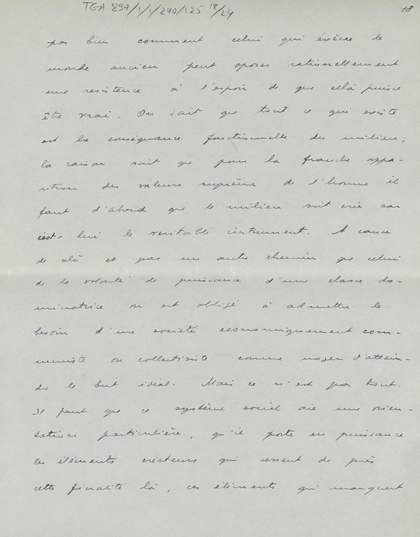 TGA 894/1/1/240/125 13/24
pas bien comment celui qui
monde ancien peut oposer rationellement
une resistence à l'espoir de que cellà puisse
être vrai. On sait que tout ce qui existe
est la conséquence fonctionnelle des milieux;
la raison sait que pour la franche appa-
rution des valeurs suprême de l'homme il
faut d'abord que le milieu soit crée
lui le veritable instrument. A cause
de alà et pas un autre chemin que celui
de la volonté de puissance d'une classe do-
minatrice on est obligé à admettre le
besoin d'une société economiquement com-
muniste ou collectiviste comme moyen d'attein-
dre le but idéal. Mais ce n'est pas tout.
Il faut que ce système social aie une orien-
tation particulière, qu'il porte en puissance
les éléments créateurs qui de près
cette finalité là, ces éléments qui manquent